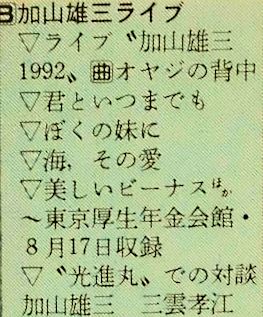 B加山雄三ライブ
▽ライブ〝加山雄三
1992〟 曲オヤジの背中
▽君といつまでも
▽ぼくの妹に
▽海，その愛
▽美しいビーナスほか
〜東京厚生年金会館・
8月17日収録
▽〝光進丸〟での対談
加山雄三　三雲孝江